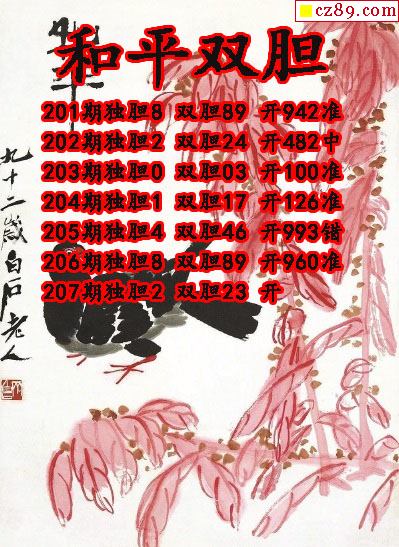 cz89.com
和平双胆
201期独胆8 双胆89 开942准
202期独胆2 双胆24 开482中
203期独胆0 双胆03 开100准
204期独胆1 双胆17 开126准
205期独胆4 双胆46 开993错
206期独胆8 双胆89 开960准
207期独胆2 双胆23 开
九十二岁白石老人